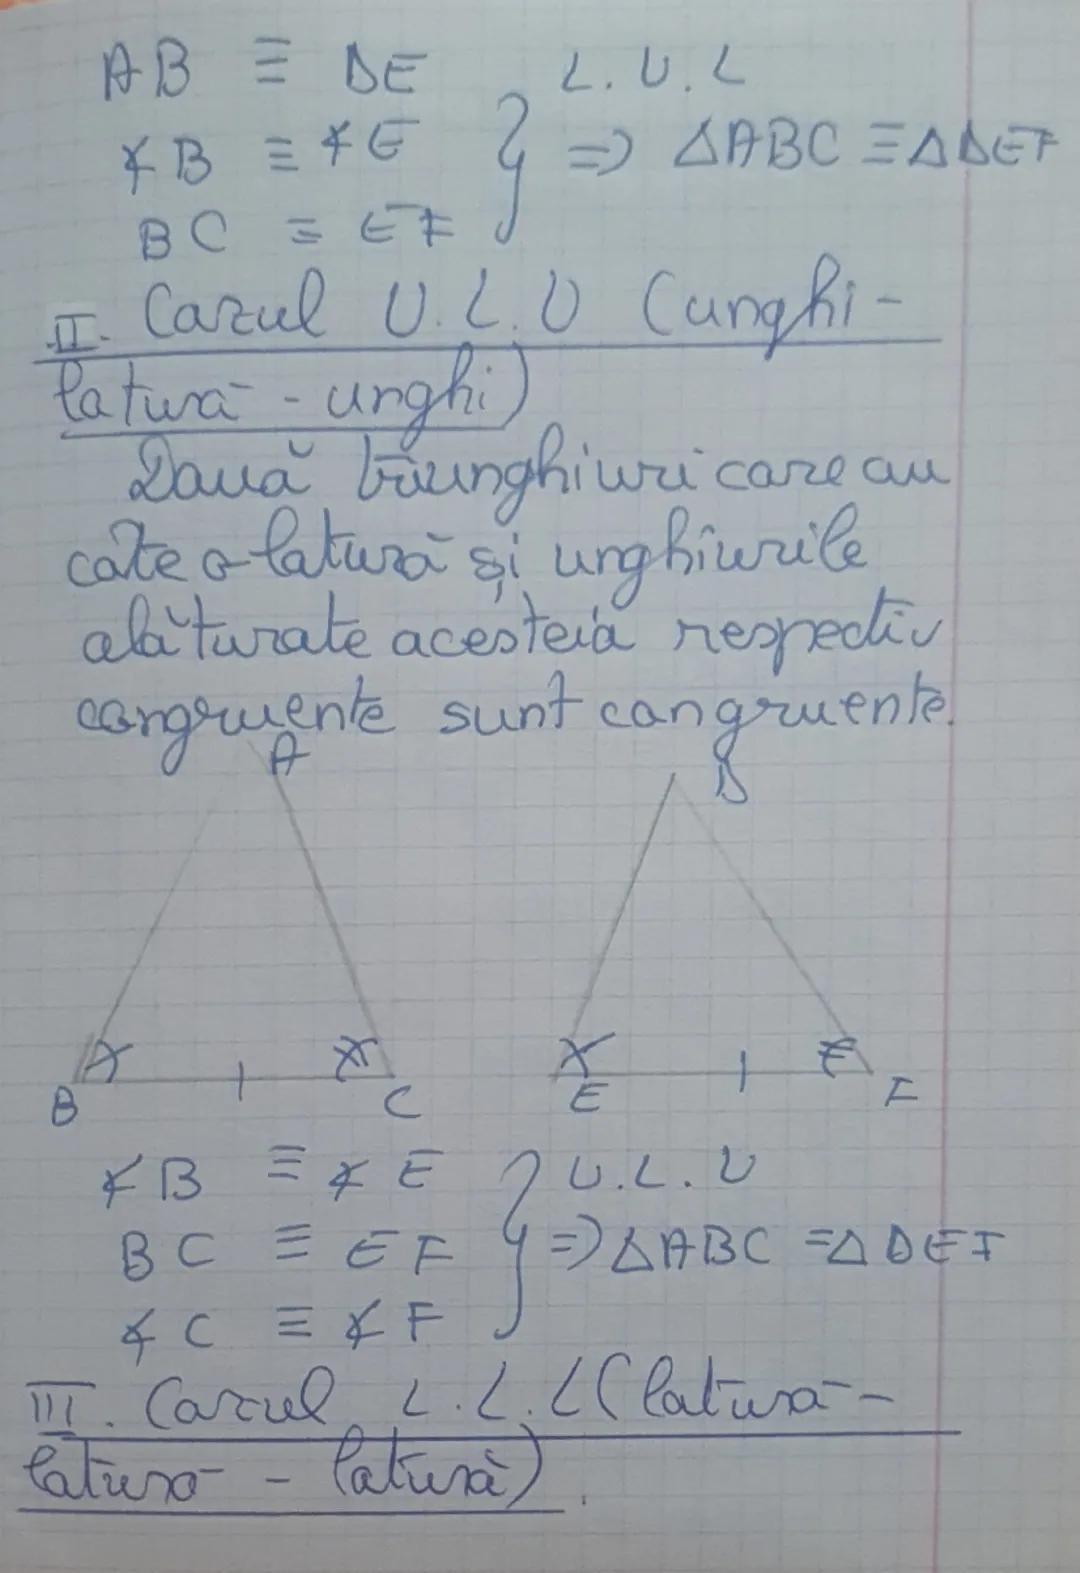 AB ≡ DE L.U.L
∢B ≡ ∢E } => △ABC ≡ △DEF
BC ≡ EF
II. Cazul U.L.U (unghi-
latură - unghi)
Două triunghiuri care au
câte o latură și unghiurile
alăturate acesteia respectiv
congruente sunt congruente.
A D
B C E F
∢B ≡ ∢E U.L.U
BC ≡ EF } => △ABC ≡ △DEF
∢C ≡ ∢F
III. Cazul L.L.L (latură-
latură - latură).